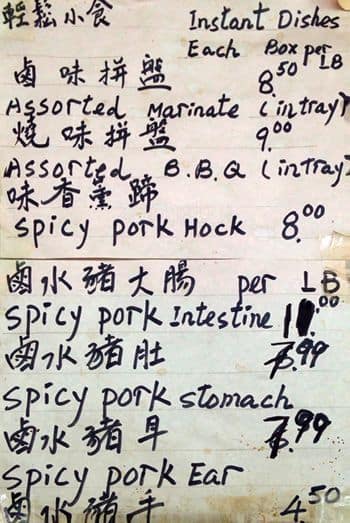 輕鬆小食 Instant Dishes
Each Box per LB
鹵味拼盤 8.50
Assorted Marinate (in tray)
燒味拼盤 9.00
Assorted B.B.Q (in tray)
味香熏蹄
Spicy pork Hock 8.00
鹵水豬大腸 per LB
Spicy pork Intestine 11.00
鹵水豬肚 7.99
Spicy pork stomach
鹵水豬耳 7.99
Spicy pork Ear
鹵水豬手 4.50